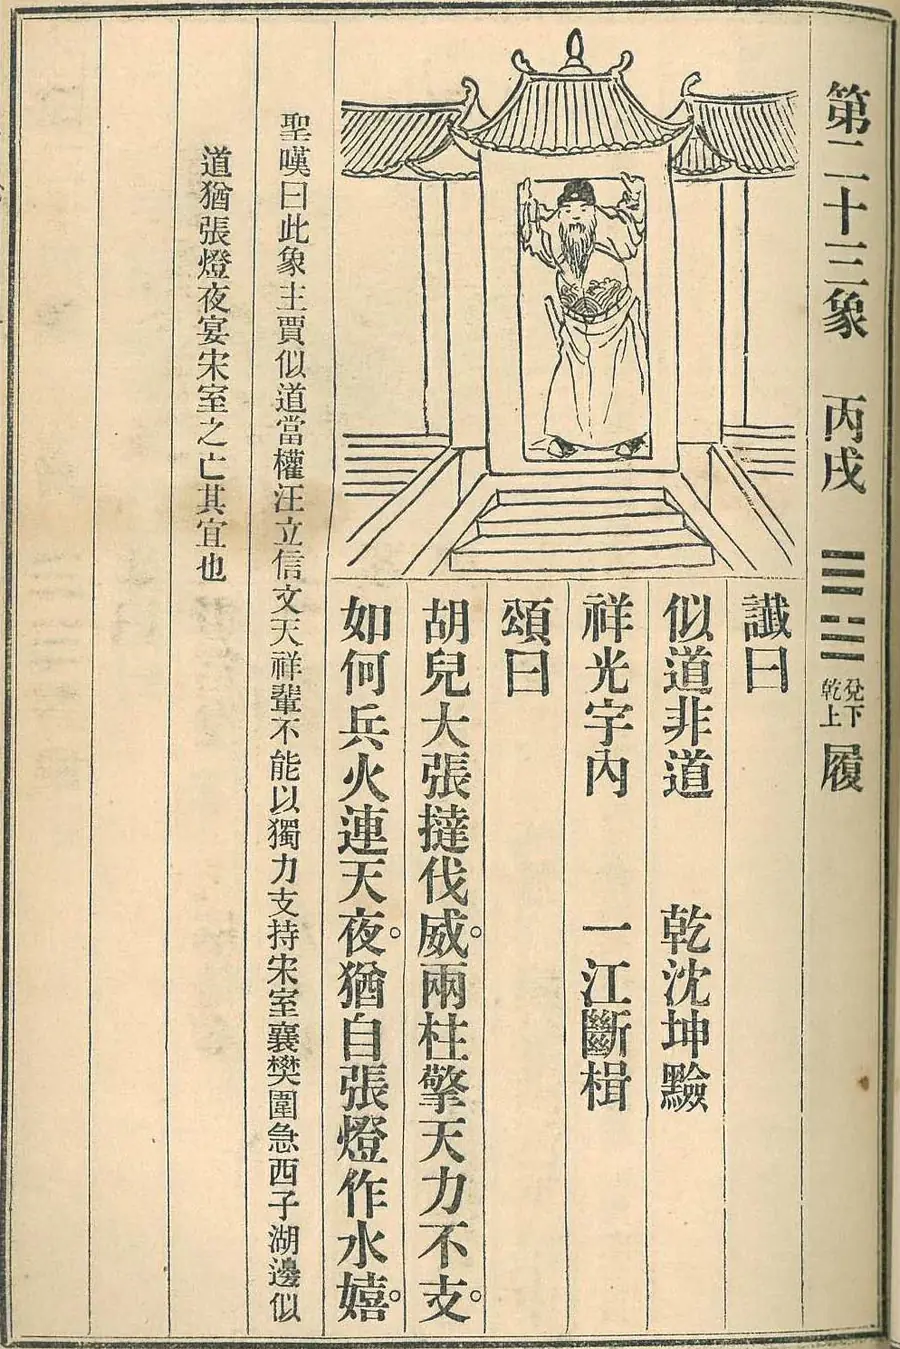 第二十三象 丙戌 ䷉ 兌下乾上 履
讖曰
似道非道 乾沈坤黯
祥光宇內 一江斷楫
頌曰
胡兒大張撻伐威。兩柱擎天力不支。
如何兵火連天夜。猶自張燈作水嬉。
聖嘆曰此象主賈似道當權汪立信文天祥輩不能以獨力支持宋室襄樊圍急西子湖邊似
道猶張燈夜宴宋室之亡其宜也